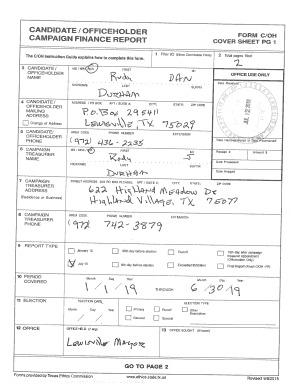 CANDIDATE / OFFICEHOLDER
CAMPAIGN FINANCE REPORT
FORM C/OH
COVER SHEET PG 1
The C/OH Instruction Guide explains how to complete this form.
1 Filer ID (Ethics Commission Filers)
2 Total pages filed:
2
3 CANDIDATE / OFFICEHOLDER NAME
MS / MRS / MR FIRST MI
Rudy DAN
NICKNAME LAST SUFFIX
DURHAM
OFFICE USE ONLY
Date Received
4 CANDIDATE / OFFICEHOLDER MAILING ADDRESS
Change of Address
ADDRESS / PO BOX; APT / SUITE #; CITY; STATE; ZIP CODE
P.O. Box 295411
Lewisville, TX 75029
5 CANDIDATE / OFFICEHOLDER PHONE
AREA CODE PHONE NUMBER EXTENSION
(972) 436-2235
Date Hand-delivered or Date Postmarked
Receipt # Amount $
Date Processed
Date Imaged
6 CAMPAIGN TREASURER NAME
MS / MRS / MR FIRST MI
Rudy
NICKNAME LAST SUFFIX
DURHAM
7 CAMPAIGN TREASURER ADDRESS
(Residence or Business)
STREET ADDRESS (NO PO BOX PLEASE); APT / SUITE #; CITY; STATE; ZIP CODE
622 Highland Meadow Dr
Highland Village, TX 75077
8 CAMPAIGN TREASURER PHONE
AREA CODE PHONE NUMBER EXTENSION
(972 742-3879
9 REPORT TYPE
January 15
30th day before election
Runoff
15th day after campaign treasurer appointment (Officeholder Only)
July 15
8th day before election
Exceeded $500 limit
Final Report (Attach C/OH - FR)
10 PERIOD COVERED
Month Day Year
1 / 1 / 19 THROUGH 6 / 30 / 19
11 ELECTION
ELECTION DATE
Month Day Year
ELECTION TYPE
Primary
Runoff
Other Description
General
Special
12 OFFICE
OFFICE HELD (if any)
Lewisville
13 OFFICE SOUGHT (if known)
GO TO PAGE 2
Forms provided by Texas Ethics Commission
www.ethics.state.tx.us
Revised 9/8/2015